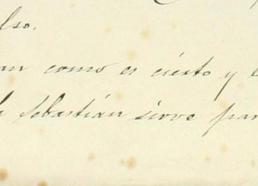 lso.
an como es cierto y e
Sebastián sirva par